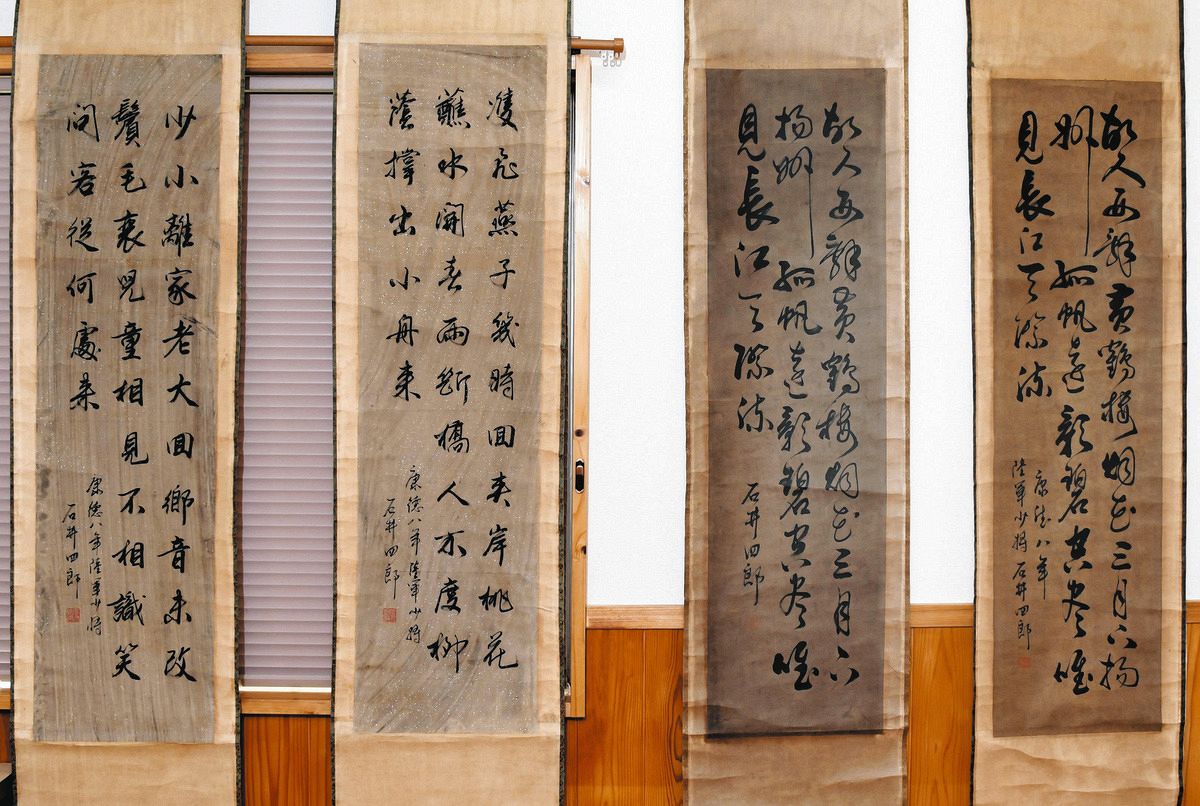 故人西辭黃鶴樓烟花三月下揚
州孤帆遠影碧空盡唯
見長江天際流
康德八年
陸軍少將 石井四郎
故人西辭黃鶴樓烟花三月下
揚州孤帆遠影碧空盡唯
見長江天際流
石井四郎
雙飛燕子幾時回夾岸桃花
蘸水開春雨斷橋人不度柳
蔭撐出小舟來
康德八年 陸軍少將
石井四郎
少小離家老大回鄉音未改
鬢毛衰兒童相見不相識笑
問客從何處來
康德八年陸軍少將
石井四郎